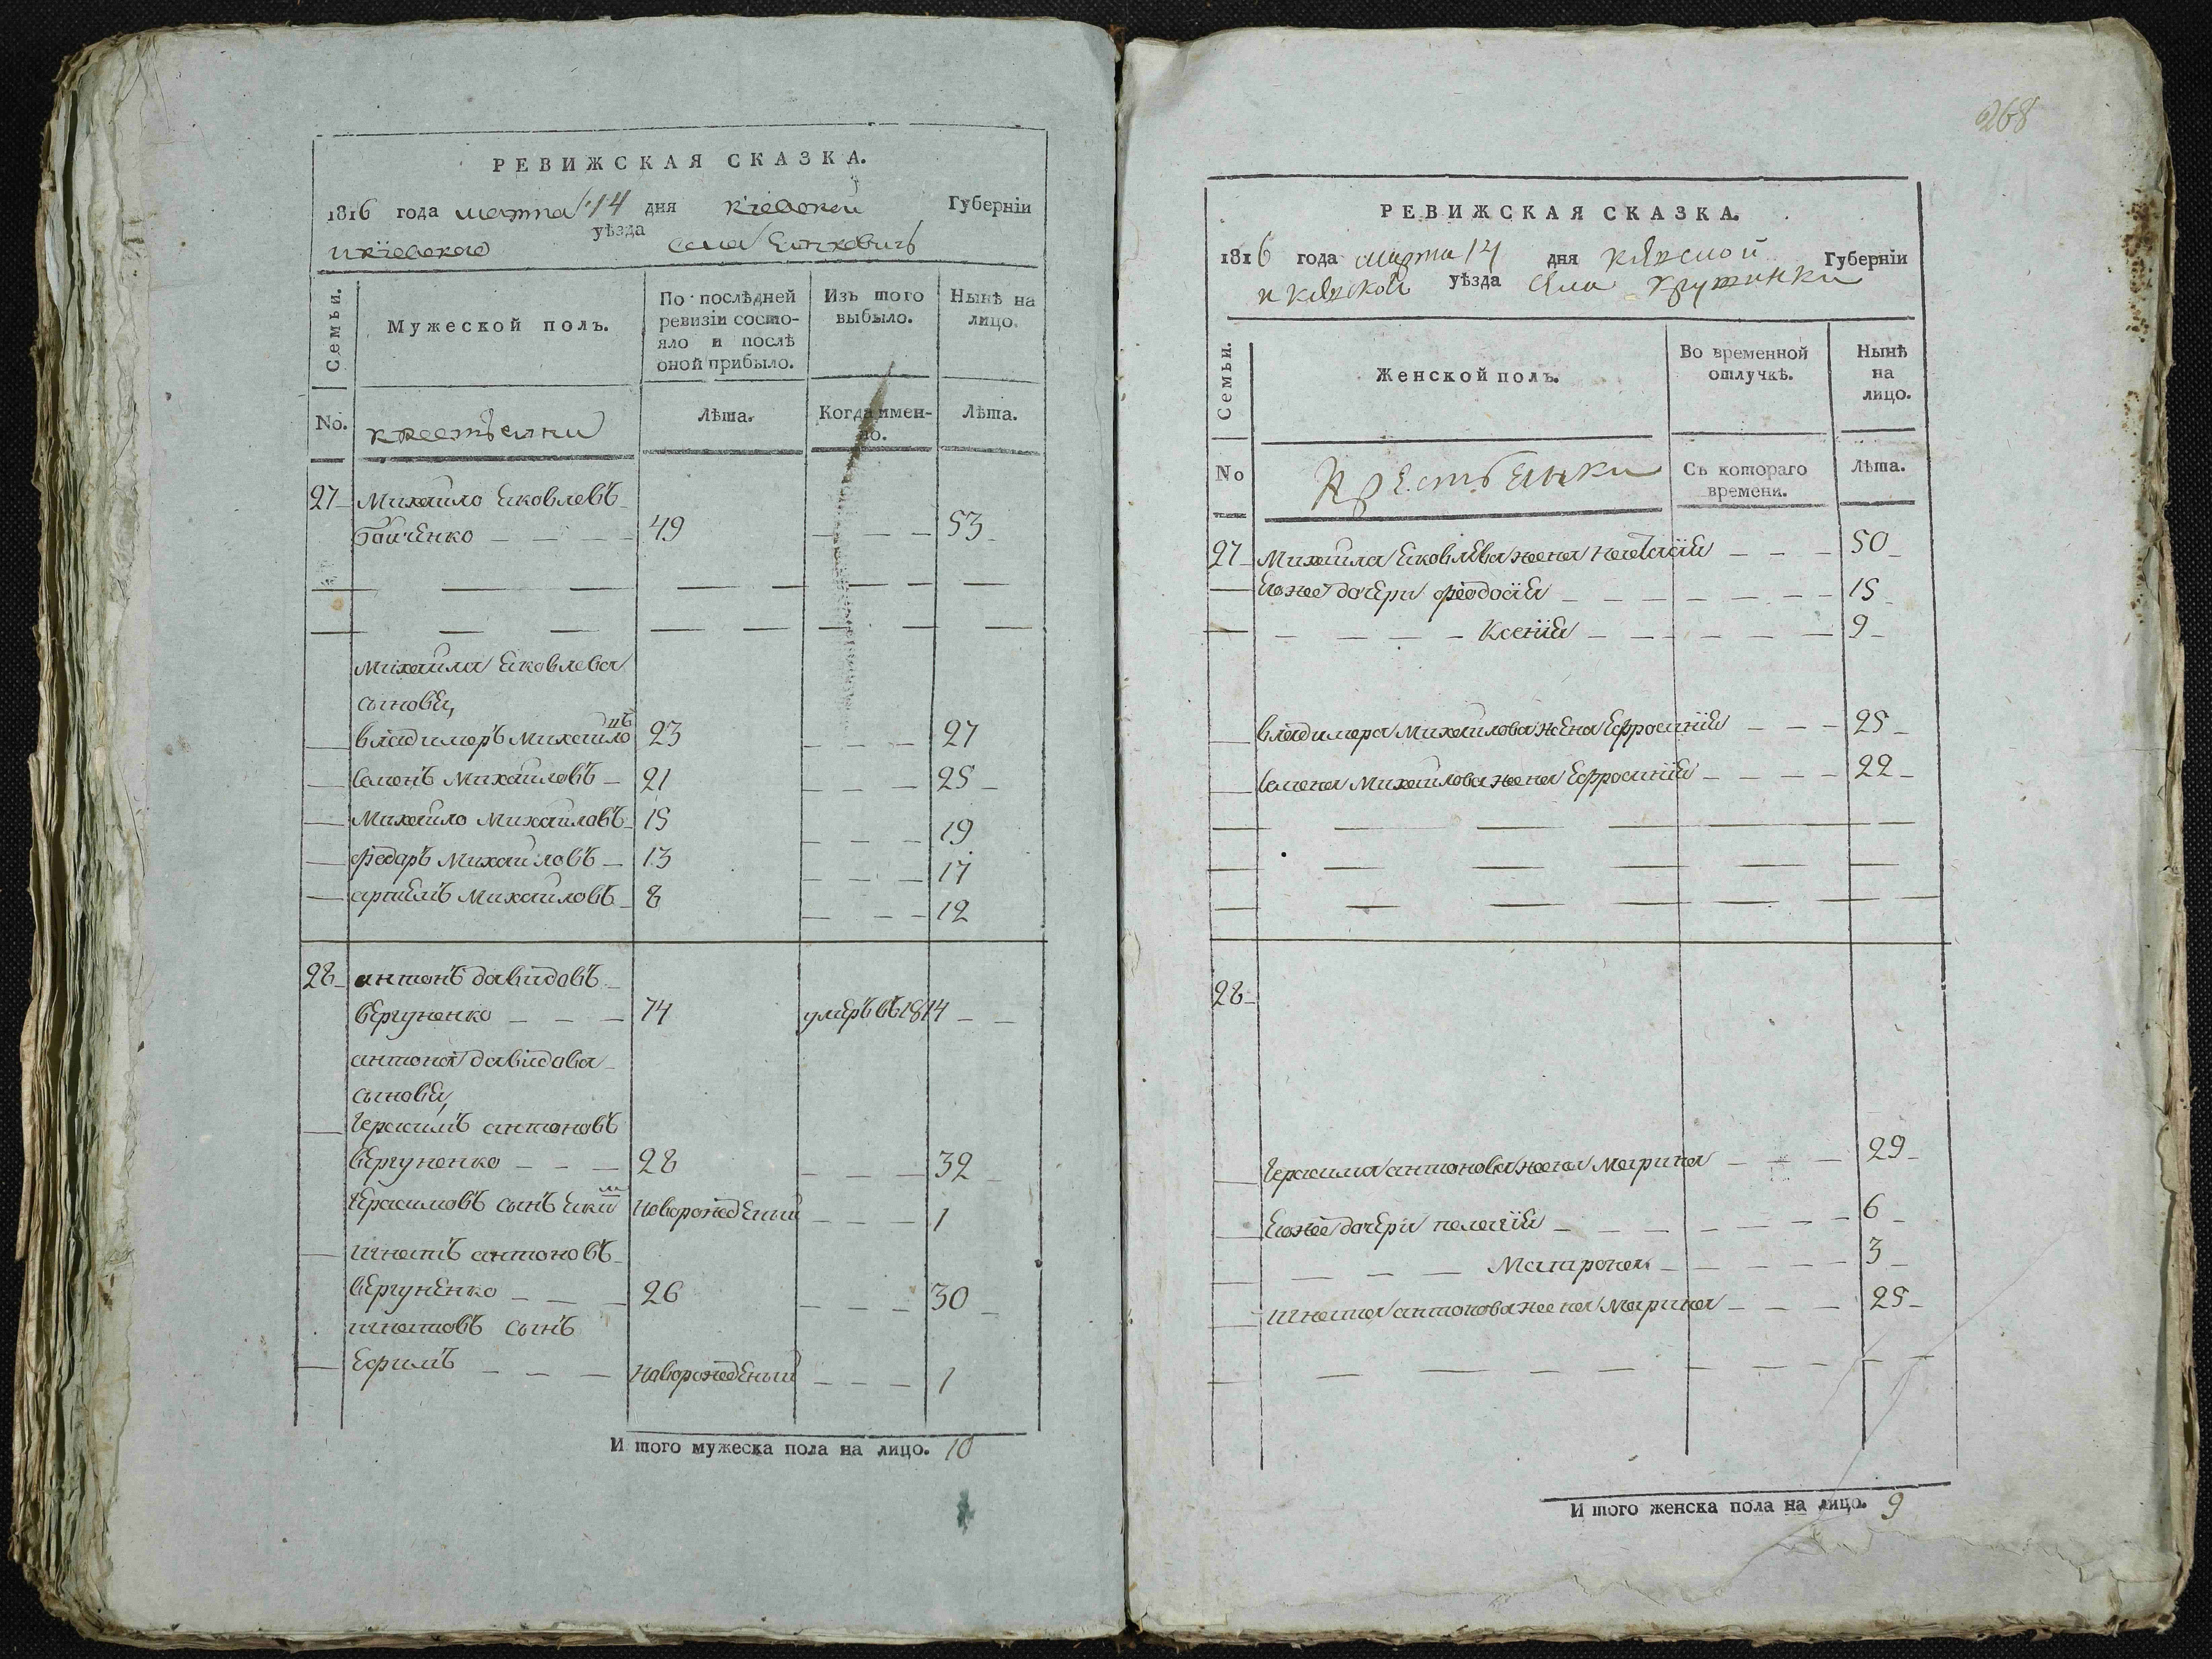 РЕВИЖСКАЯ СКАЗКА.
1816 года марта 14 дня кіевской Губерніи
и кіевского уѣзда села
Семьи.
Мужеской полъ.
По послѣдней ревизіи состо-
яло и послѣ
оной прибыло.
Изъ того
выбыло.
Нынѣ на
лицо.
No.
крестьяни
Лѣта.
Когда имен-
но.
Лѣта.
27 Михайло Яковлевъ
49 53
Михайла Яковлева
сыновя,
владимеръ Михайловъ 23 27
Семенъ Михайловъ 21 25
Михайло Михайловъ 15 19
Федоръ Михайловъ 13 17
артемъ Михайловъ 8 12
28 антонъ давидовъ
вергуненко 74 умеръ въ 1814
антона давидова
сыновя,
Герасимъ антоновъ
вергуненко 28 32
Герасимовъ сынъ Новорожденый 1
игнатъ антоновъ
вергуненко 26 30
игнатовъ сынъ
Ефимъ Новорожденый 1
И того мужеска пола на лицо. 10
268
РЕВИЖСКАЯ СКАЗКА.
1816 года марта 14 дня Губерніи
и уѣзда села
Семьи.
Женской полъ.
Во временной
отлучкѣ.
Нынѣ
на
лицо.
No
Крестьянки
Съ котораго
времени.
Лѣта.
27 Михайла Яковлева жена 50
Его же дочери феодосия 15
Ксения 9
владимера Михайлова жена Ефросиния 25
Семена Михайлова жена Ефросиния 22
28
Герасима антонова жена Марина 29
Его же дочери пелагия 6
Матрона 3
игната антонова жена Марина 25
И того женска пола на лицо. 9